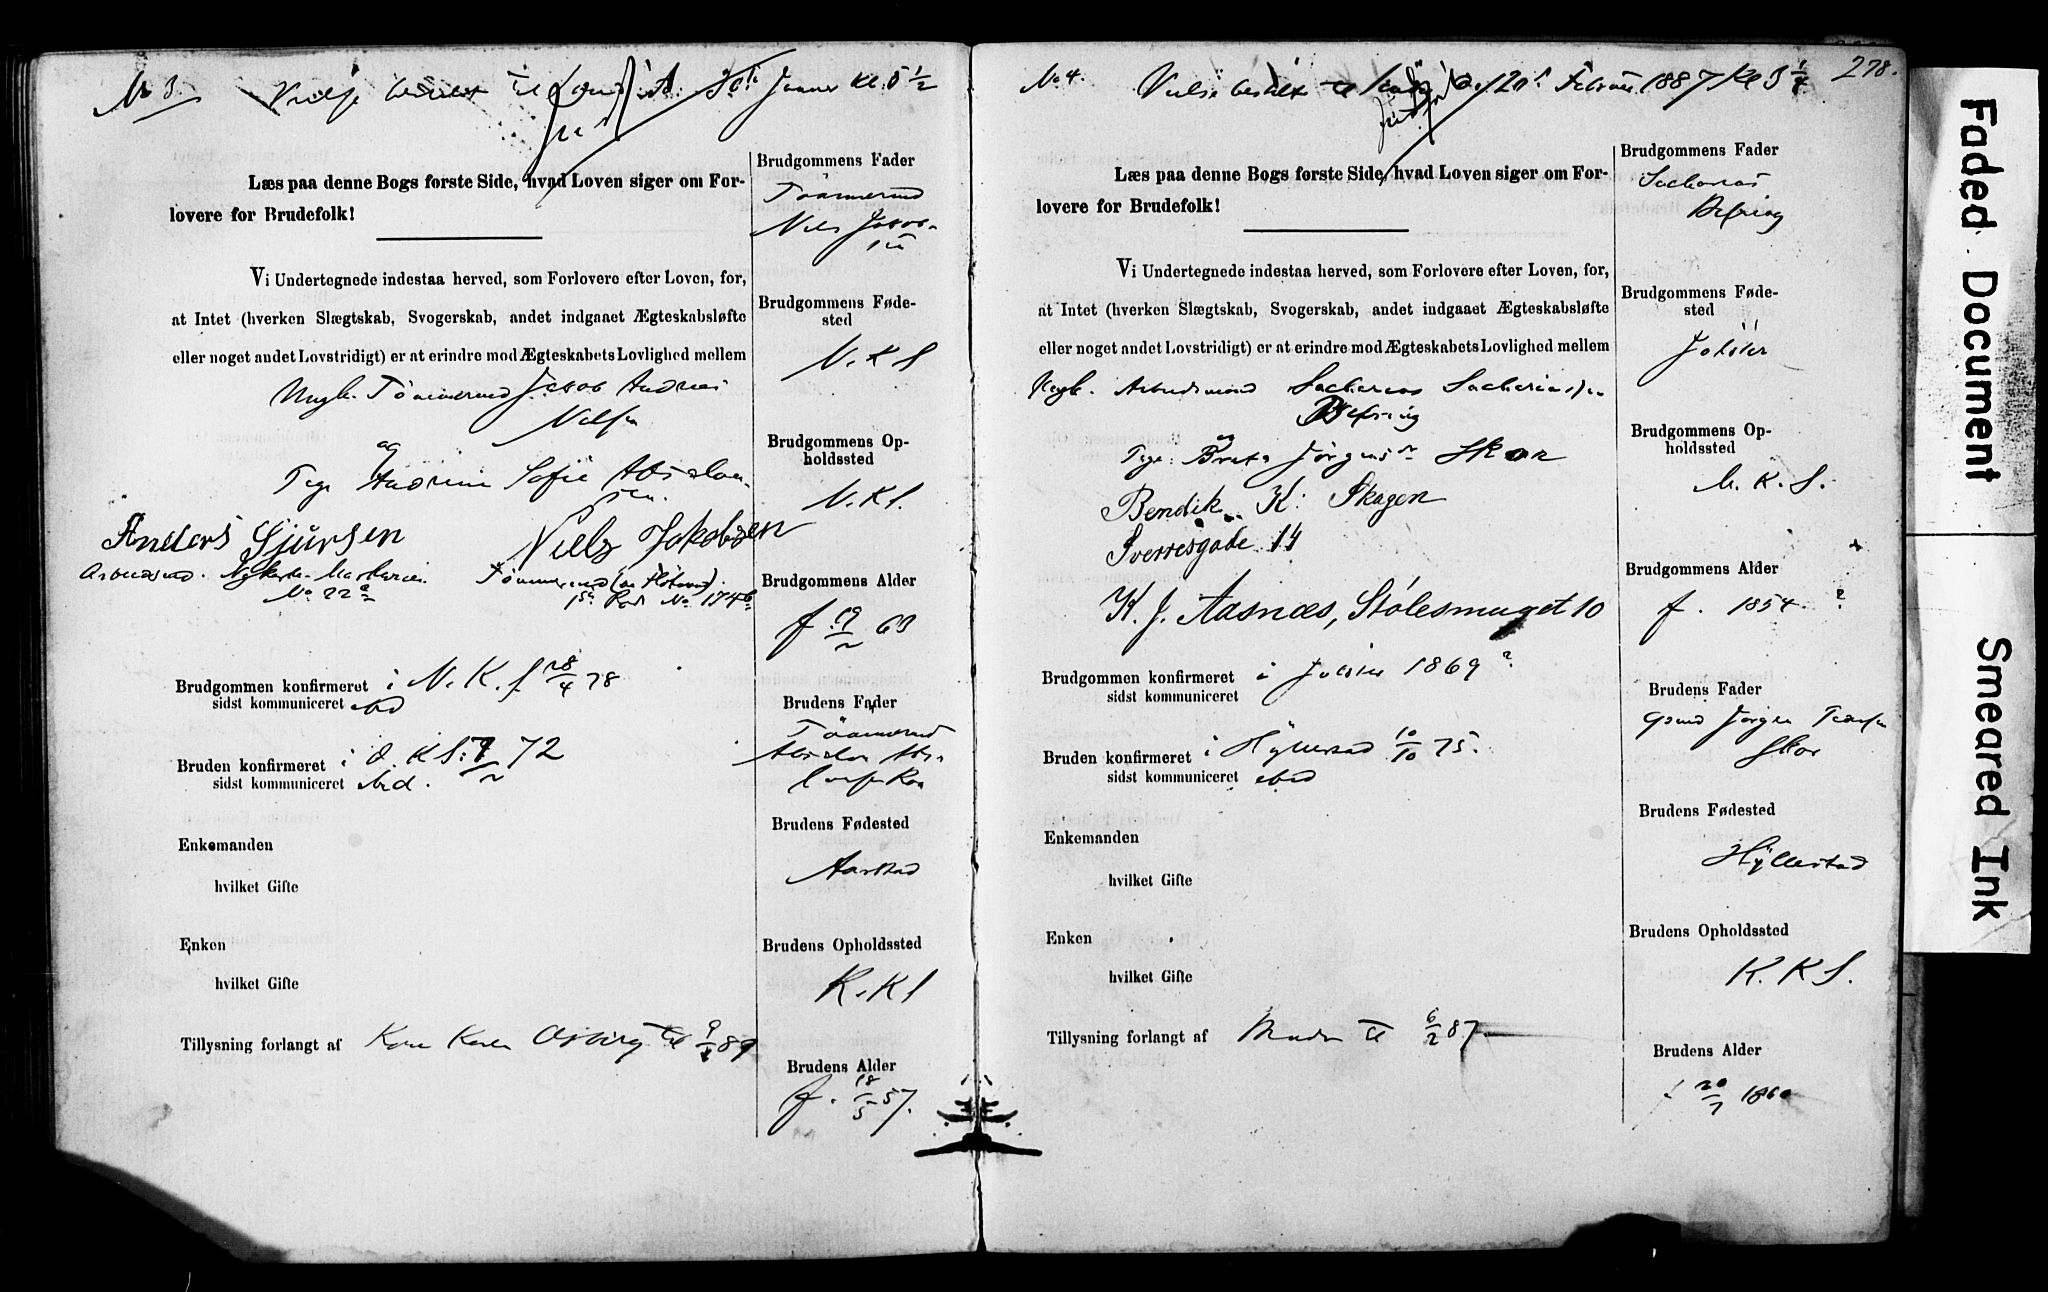 No 3.
til
Januar Kl. 5 1/2
Læs paa denne Bogs første Side, hvad Loven siger om For-
lovere for Brudefolk!
Vi Undertegnede indestaa herved, som Forlovere efter Loven, for,
at Intet (hverken Slægtskab, Svogerskab, andet indgaaet Ægteskabsløfte
eller noget andet Lovstridigt) er at erindre mod Ægteskabets Lovlighed mellem
Ungk. Tömmermd Jakob Andreas
Nilsen
og
Pige Andrine Sofie
Anders Sjursen
Niels Jakobsen
No 22
Brudgommen konfirmeret i N. K. S. 28/4 78
sidst kommuniceret ibid
Bruden konfirmeret i D. K. S. 72
sidst kommuniceret ibid.
Enkemanden
hvilket Gifte
Enken
hvilket Gifte
Tillysning forlangt af
Brudgommens Fader
Tömmermd
Nils Jakob-
sen
Brudgommens Føde-
sted
N. K. S
Brudgommens Op-
holdssted
N. K. S.
Brudgommens Alder
f. 63
Brudens Fader
Tömmermd
Brudens Fødested
Aarstad
Brudens Opholdssted
K. K. S
Brudens Alder
f. 18/5 57.
No 4.
Februar 1887 Kl 5 1/4
278.
Læs paa denne Bogs første Side, hvad Loven siger om For-
lovere for Brudefolk!
Vi Undertegnede indestaa herved, som Forlovere efter Loven, for,
at Intet (hverken Slægtskab, Svogerskab, andet indgaaet Ægteskabsløfte
eller noget andet Lovstridigt) er at erindre mod Ægteskabets Lovlighed mellem
Ungk. Arbeidsmand Sacharias Sachariassen
Befring
og
Pige Brita Jörgensdr Skor
Bendik K. Skagen
Sverresgade 14
K. J. Aasnæs, Stølesmuget 10
Brudgommen konfirmeret i Jölster 1869 ?
sidst kommuniceret
Bruden konfirmeret i Hyllestad 10/10 75.
sidst kommuniceret ibid
Enkemanden
hvilket Gifte
Enken
hvilket Gifte
Tillysning forlangt af Bruden til 6/2 87.
Brudgommens Fader
Sacharias
Befring
Brudgommens Føde-
sted
Jölster
Brudgommens Op-
holdssted
N. K. S.
Brudgommens Alder
f. 1854. ?
Brudens Fader
Gbmd Jörgen
Skor
Brudens Fødested
Hyllestad
Brudens Opholdssted
K. K. S.
Brudens Alder
f. 20/7 1860
Faded Document
Smeared Ink